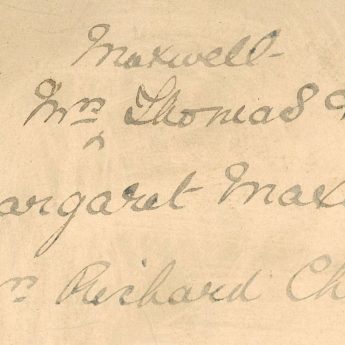 Maxwell-
^ Mrs Thomas
argaret Max
Richard Ch